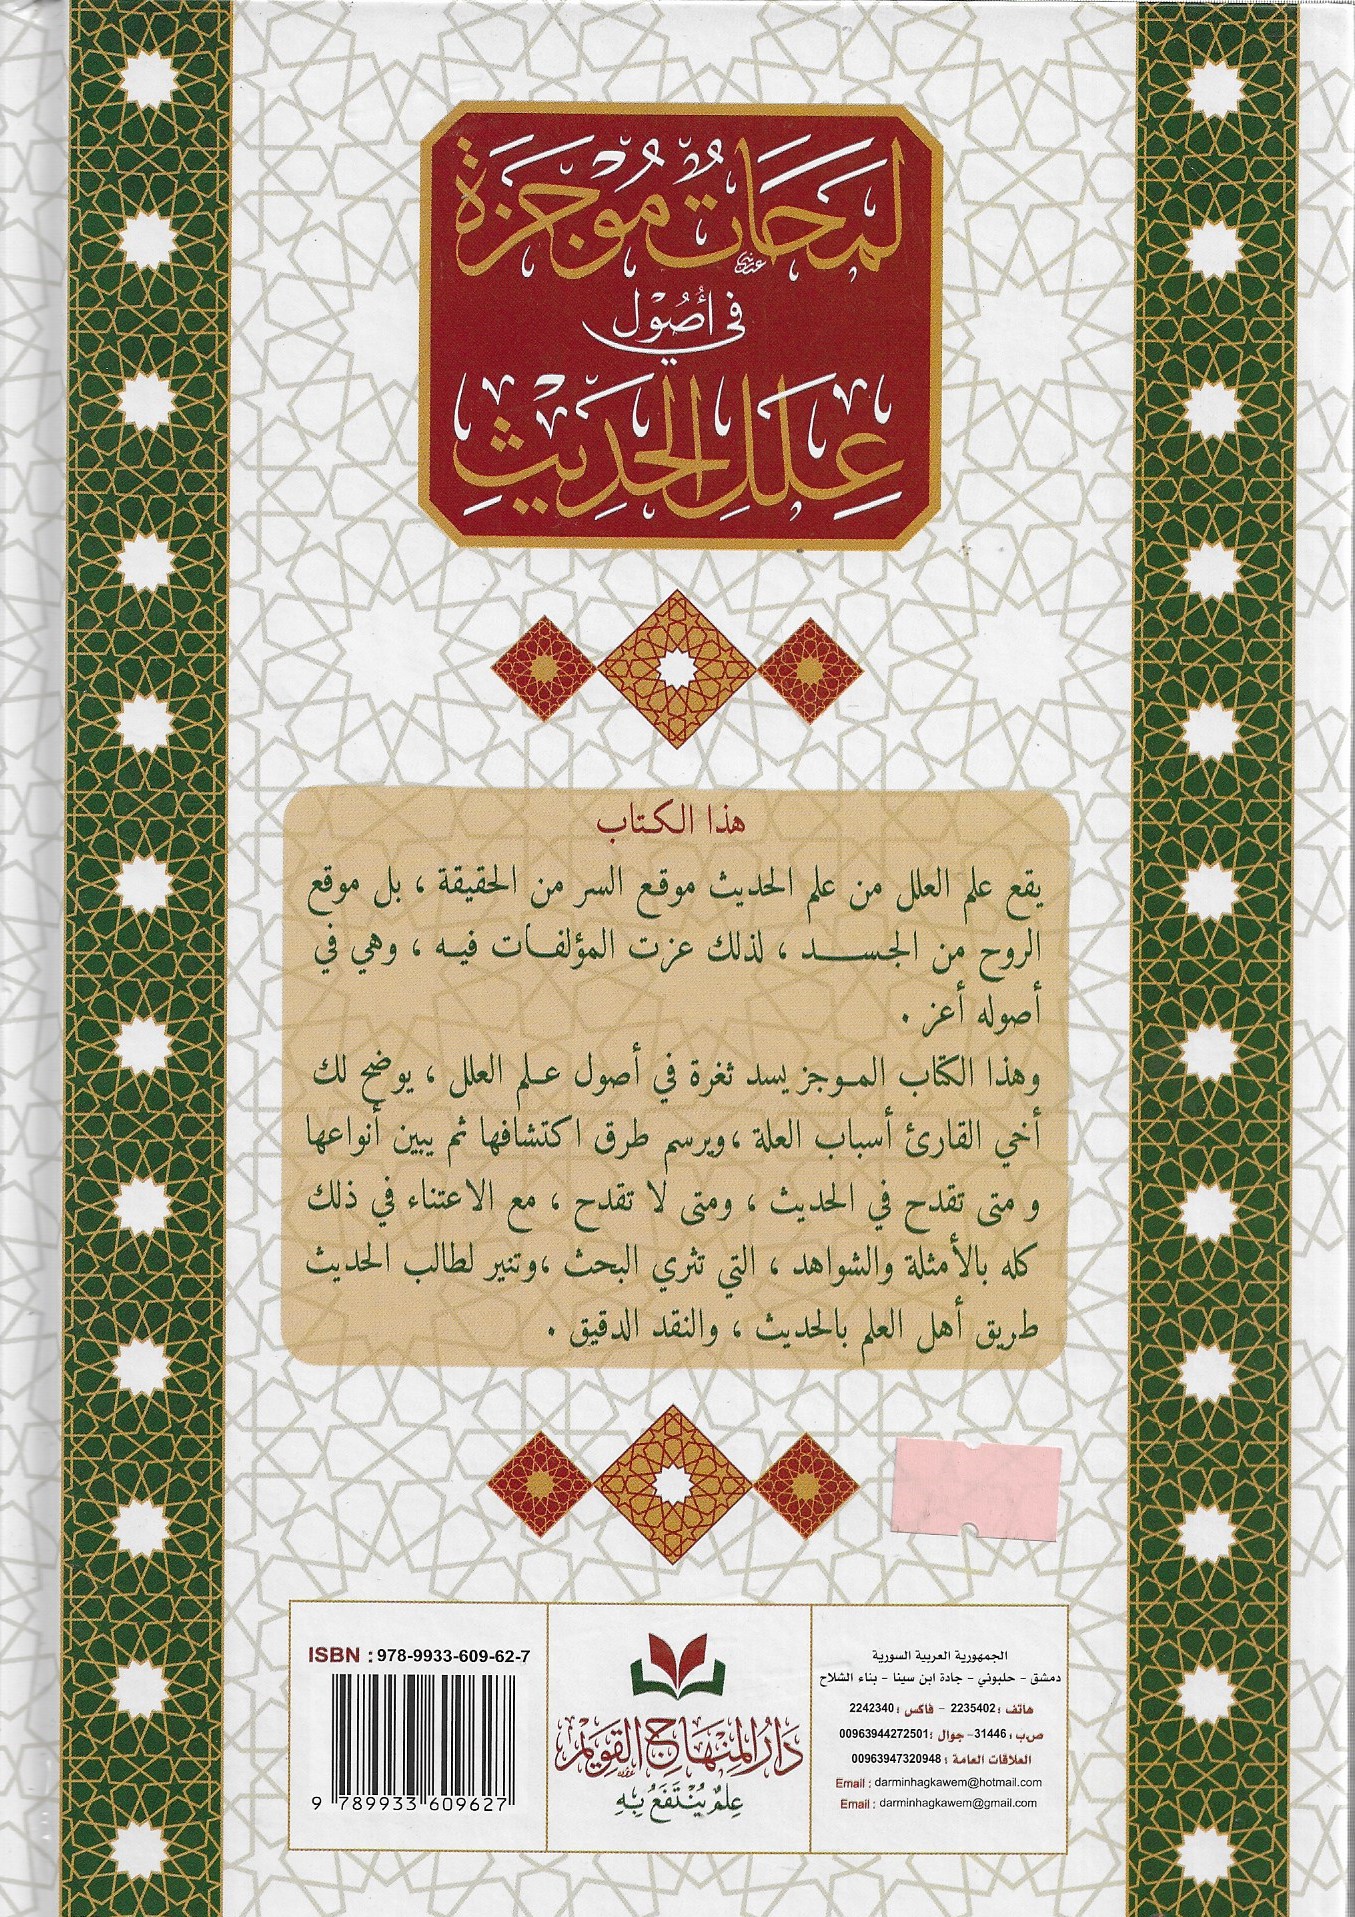 لَمَحَاتٌ مُوْجَزَة
في أُصُوْل
عِلَلِ الحَدِيْثِ
هذا الكتاب
يقع علم العلل من علم الحديث موقع السر من الحقيقة ، بل موقع
الروح من الجسد ، لذلك عزت المؤلفات فيه ، وهي في
أصوله أعز .
وهذا الكتاب الموجز يسد ثغرة في أصول علم العلل ، يوضح لك
أخي القارئ أسباب العلة ،ويرسم طرق اكتشافها ثم يبين أنواعها
و متى تقدح في الحديث ، ومتى لا تقدح ، مع الاعتناء في ذلك
كله بالأمثلة والشواهد ، التي تثري البحث ،وتنير لطالب الحديث
طريق أهل العلم بالحديث ، والنقد الدقيق .
الجمهورية العربية السورية
دمشق - حلبوني - جادة ابن سينا - بناء الشلاح
هاتف : 2235402 - فاكس : 2242340
ص.ب : 31446- جوال :00963944272501
العلاقات العامة : 00963947320948
Email : darminhagkawem@hotmail.com
Email : darminhagkawem@gmail.com
دَارُ المِنْهَاجِ القَوِيْمِ
عِلمٌ يُنْتَفَعُ بِهِ
ISBN : 978-9933-609-62-7
9 789933 609627